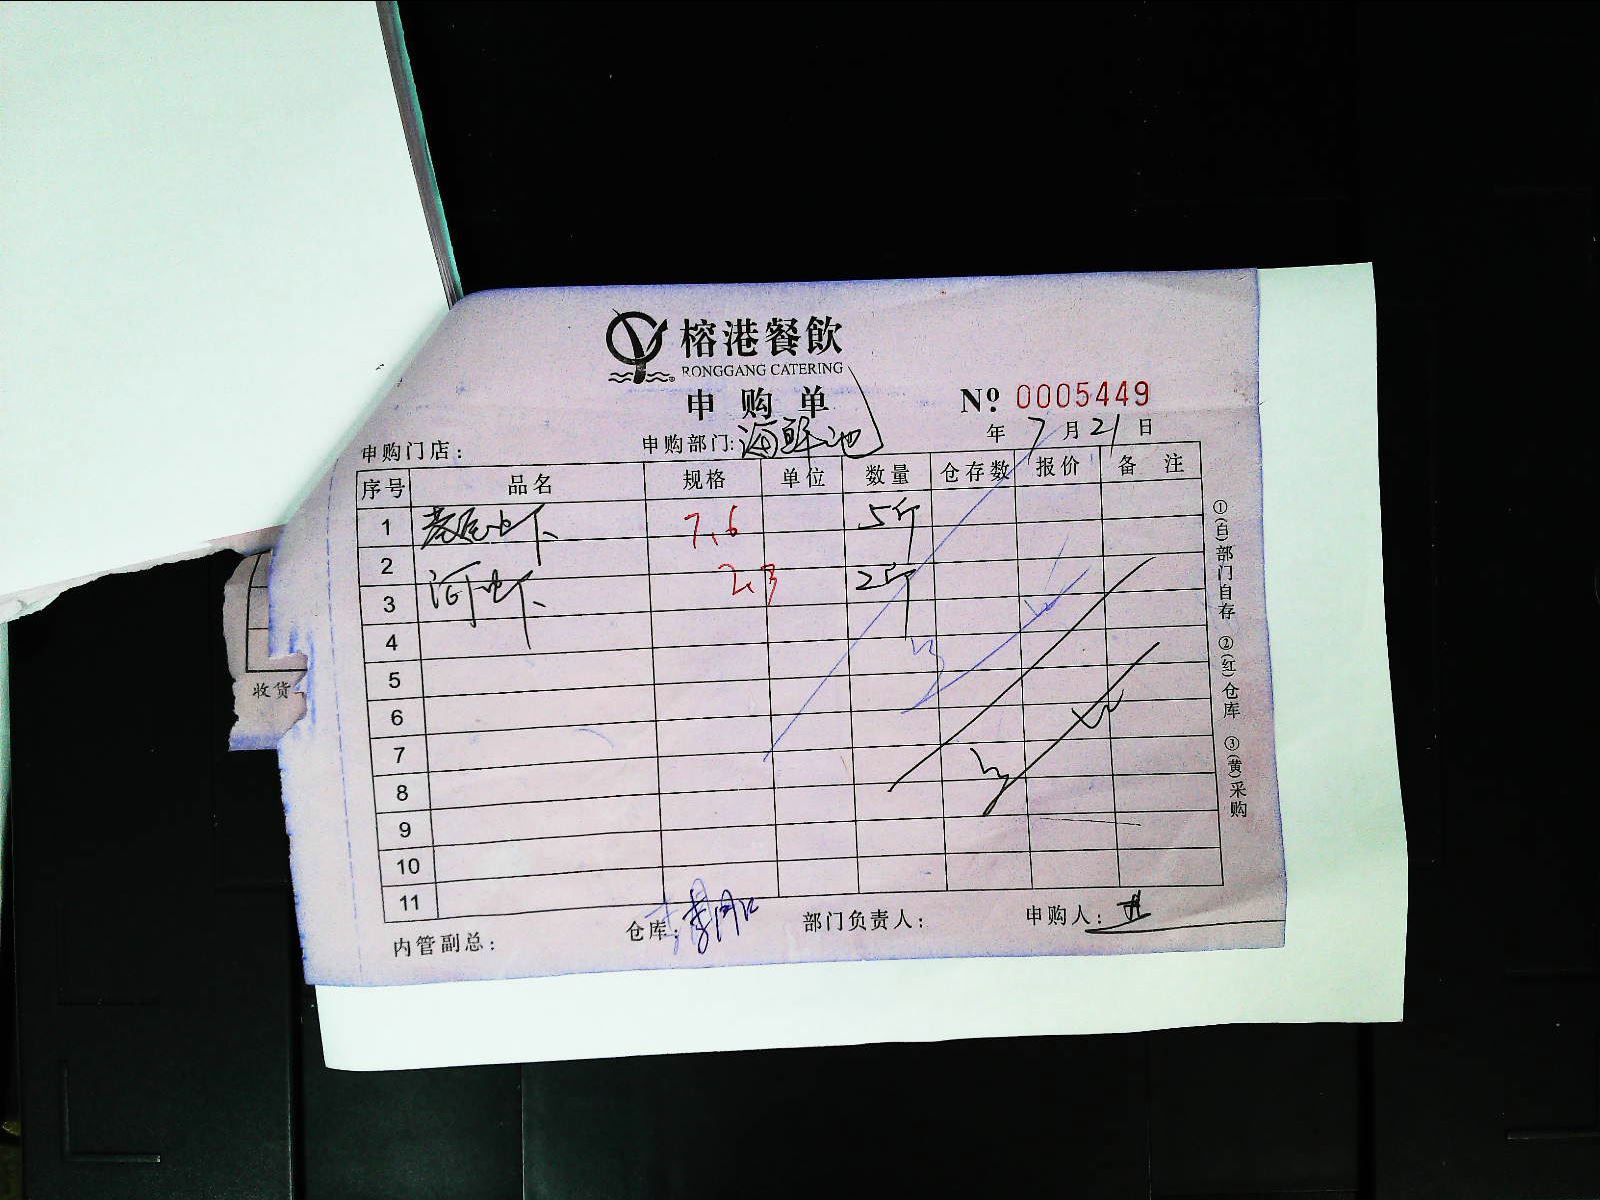 榕港餐飲
RONGGANG CATERING
申购单
№ 0005449
申购门店：
申购部门：海鲜池
年 7 月 21 日
序号 品名 规格 单位 数量 仓存数 报价 备注
1 虾 7.6 5斤
2
3 河虾 2.3 2斤
4
5
6
7
8
9
10
11
内管副总：
仓库：
部门负责人：
申购人：
①(白)部门自存 ②(红)仓库 ③(黄)采购
收货